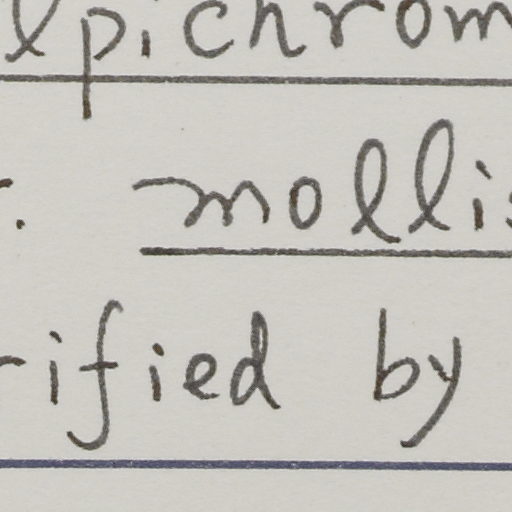 lpichrom
r. mollis
rified by